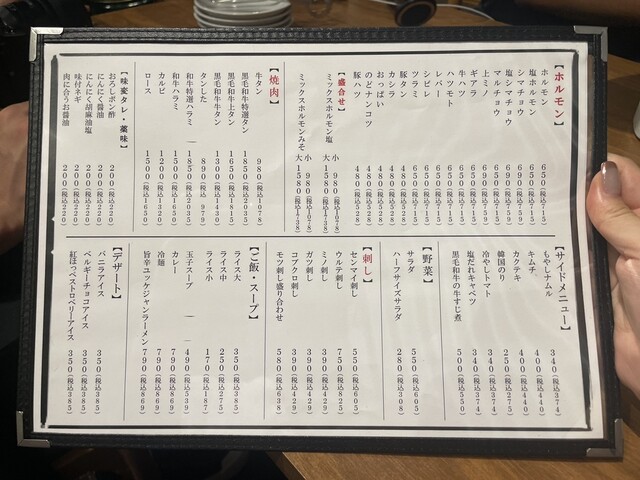 【ホルモン】
ホルモン 650(税込715)
塩ホルモン 650(税込715)
シマチョウ 690(税込759)
塩シマチョウ 690(税込759)
マルチョウ 690(税込759)
上ミノ 690(税込759)
ギアラ 650(税込715)
牛ハツ 650(税込715)
ハツモト 650(税込715)
レバー 650(税込715)
シビレ 650(税込715)
ツラミ 650(税込715)
豚タン 480(税込528)
カシラ 480(税込528)
おっぱい 480(税込528)
のどナンコツ 480(税込528)
豚ハツ 480(税込528)
【盛合せ】
ミックスホルモン塩 小 980(税込1078)
大 1580(税込1738)
ミックスホルモンみそ 小 980(税込1078)
大 1580(税込1738)
【焼肉】
牛タン 980(税込1078)
黒毛和牛特選タン 1850(税込2035)
黒毛和牛上タン 1650(税込1815)
黒毛和牛牛タン 1300(税込1430)
タンした 890(税込979)
和牛特選ハラミ 1850(税込2035)
和牛ハラミ 1500(税込1650)
カルビ 1200(税込1320)
ロース 1500(税込1650)
【味変タレ・薬味】
おろしポン酢 200(税込220)
にんにく醤油 200(税込220)
にんにく胡麻油塩 200(税込220)
味付ネギ 200(税込220)
肉に合うお醤油 200(税込220)
【サイドメニュー】
もやしナムル 340(税込374)
キムチ 400(税込440)
カクテキ 400(税込440)
韓国のり 250(税込275)
冷やしトマト 340(税込374)
塩だれキャベツ 340(税込374)
黒毛和牛の牛すじ煮 500(税込550)
【野菜】
サラダ 550(税込605)
ハーフサイズサラダ 280(税込308)
【刺し】
センマイ刺し 550(税込605)
ウルテ刺し 750(税込825)
ミノ刺し 390(税込429)
ガツ刺し 390(税込429)
コブクロ刺し 390(税込429)
モツ刺し盛り合わせ 580(税込638)
【ご飯・スープ】
ライス大 350(税込385)
ライス中 250(税込275)
ライス小 170(税込187)
玉子スープ 490(税込539)
カレー 790(税込869)
冷麺 790(税込869)
旨辛ユッケジャンラーメン 790(税込869)
【デザート】
バニラアイス 350(税込385)
ベルギーチョコアイス 350(税込385)
紅ほっぺストロベリーアイス 350(税込385)